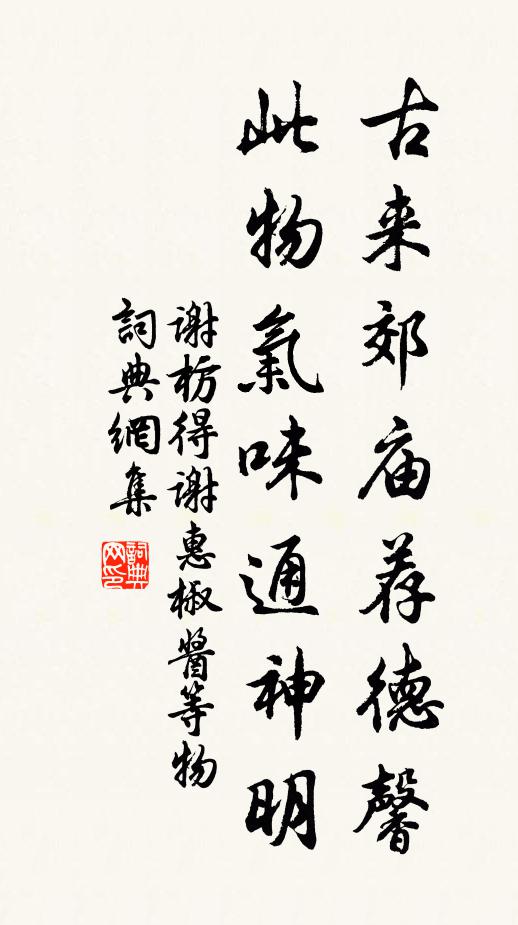 古来郊庙荐德馨
此物氣味通神明
谢枋得谢惠椒醬等物
詞典網集
詞典网印